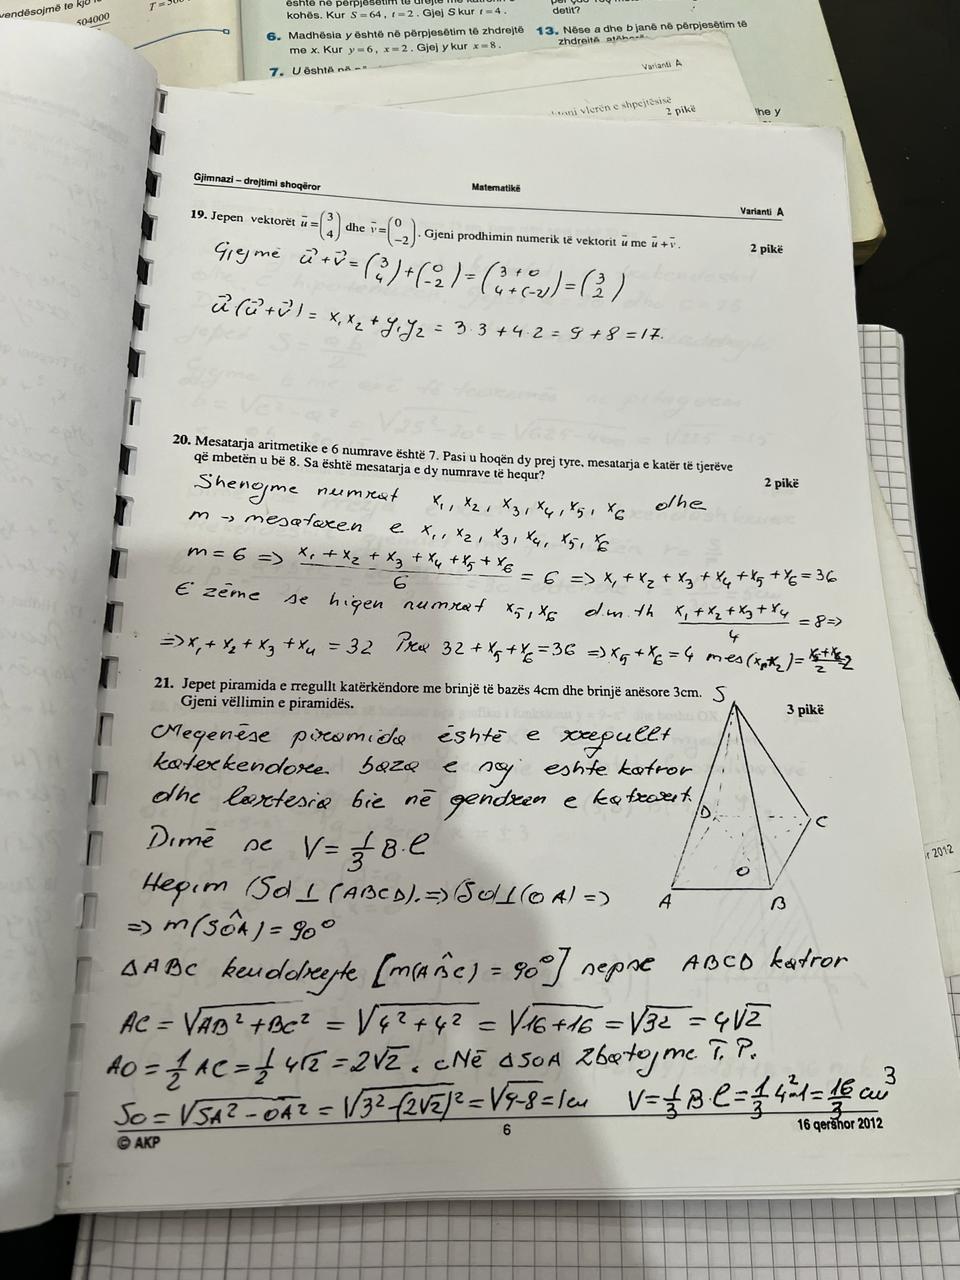 504000
kohës. Kur S = 64, t = 2. Gjej S kur t = 4.
6. Madhësia y është në përpjesëtim të zhdrejtë
me x. Kur y = 6, x = 2. Gjej y kur x = 8.
7. U është në
detit?
13. Nëse a dhe b janë në përpjesëtim të
zhdrejtë
Varianti A
vlerën e shpejtësisë
2 pikë
dhe y
Gjimnazi – drejtimi shoqëror Matematikë Varianti A
19. Jepen vektorët u⃗ = (3 4) dhe v⃗ = (0 −2). Gjeni prodhimin numerik të vektorit u⃗ me u⃗ + v⃗. 2 pikë
Gjejmë u⃗+v⃗ = (3 4) + (0 −2) = (3+0 4+(−2)) = (3 2)
u⃗·(u⃗+v⃗) = x₁x₂ + y₁y₂ = 3·3 + 4·2 = 9 + 8 = 17.
20. Mesatarja aritmetike e 6 numrave është 7. Pasi u hoqën dy prej tyre, mesatarja e katër të tjerëve
që mbetën u bë 8. Sa është mesatarja e dy numrave të hequr? 2 pikë
Shenojme numrat x₁, x₂, x₃, x₄, x₅, x₆ dhe
m → mesataren e x₁, x₂, x₃, x₄, x₅, x₆
m = 6 => (x₁ + x₂ + x₃ + x₄ + x₅ + x₆)/6 = 6 => x₁ + x₂ + x₃ + x₄ + x₅ + x₆ = 36
E zëme se hiqen numrat x₅, x₆ d.m.th (x₁ + x₂ + x₃ + x₄)/4 = 8 =>
=> x₁ + x₂ + x₃ + x₄ = 32 Pra 32 + x₅ + x₆ = 36 => x₅ + x₆ = 4 mes(x₅,x₆) = (x₅+x₆)/2 = 2
21. Jepet piramida e rregullt katërkëndore me brinjë të bazës 4cm dhe brinjë anësore 3cm.
Gjeni vëllimin e piramidës. 3 pikë
S
D
C
O
A
B
Meqenëse piramida është e rregullt
katerkendore baza e saj eshte katror
dhe lartesia bie në qendren e katrorit
Dimë se V = 1/3 B·l
Heqim (SO) ⊥ (ABCD). => (SO) ⊥ (OA) =>
=> m(SÔA) = 90°
△ABC kenddrejte [m(AB̂C) = 90°] sepse ABCD katror
AC = √AB² + BC² = √4² + 4² = √16+16 = √32 = 4√2
AO = 1/2 AC = 1/2 4√2 = 2√2. Në △SOA zbatojme T. P.
SO = √SA² − OA² = √3² − (2√2)² = √9−8 = 1cm V = 1/3 B·l = 1/3 4²·1 = 16/3 cm³
© AKP 6 16 qershor 2012
r 2012